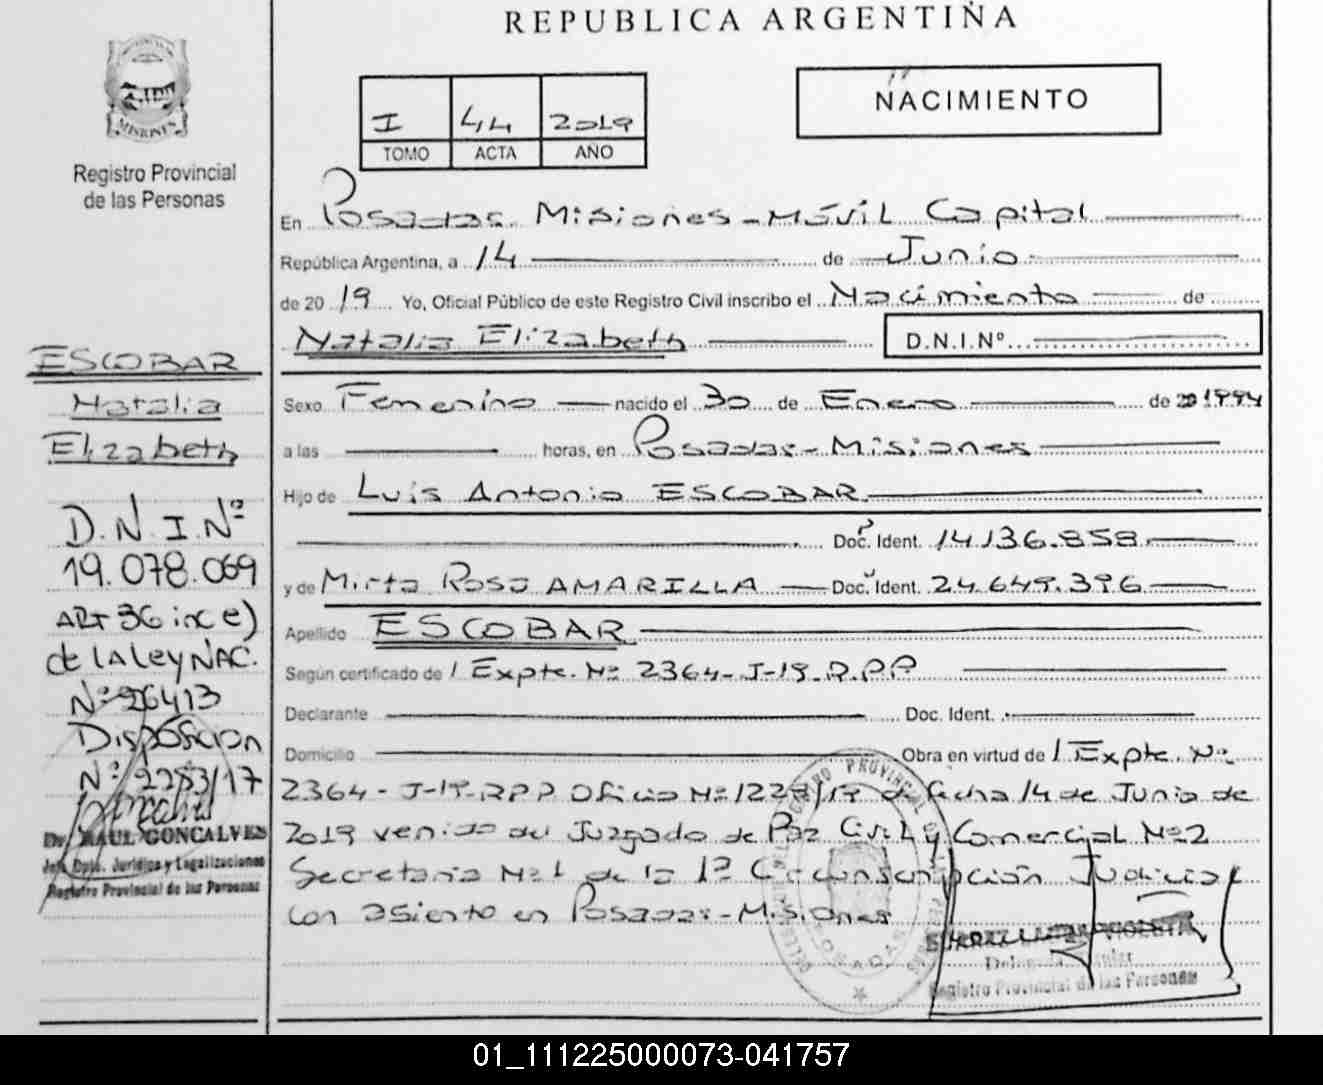 REPUBLICA ARGENTINA
MISIONES
Registro Provincial
de las Personas
I 44 2019
TOMO ACTA AÑO
NACIMIENTO
En Posadas Misiones - Móvil Capital
República Argentina, a 14 de Junio
de 2019 Yo, Oficial Público de este Registro Civil inscribo el Nacimiento de
Natalia Elizabeth D.N.I.Nº
Sexo Femenino nacido el 30 de Enero de 1994
a las horas, en Posadas - Misiones
Hijo de Luis Antonio ESCOBAR
Doc. Ident. 14.136.858
y de Mirta Rosa AMARILLA Doc. Ident. 24.649.396
Apellido ESCOBAR
Según certificado de / Expte. Nº 2364-J-19-R.P.P
Declarante Doc. Ident.
Domicilio Obra en virtud de / Expte. Nº
2364 - J-19-RPP Oficio Nº 1228/19 de fecha 14 de Junio de
2019 venido del Juzgado de Paz Civil y Comercial Nº 2
Secretaria Nº 1 de la 1º Circunscripción Judicial
con asiento en Posadas - Misiones
Registro Provincial de las Personas
ESCOBAR
Natalia
Elizabeth
D.N.I.Nº
19.078.069
ART 36 inc e)
de LA Ley NAC.
Nº 26413
Disposicion
Nº 2283/17
Dr. RAUL GONCALVES
Jefe Dpto. Jurídico y Legalizaciones
Registro Provincial de las Personas
01_111225000073-041757